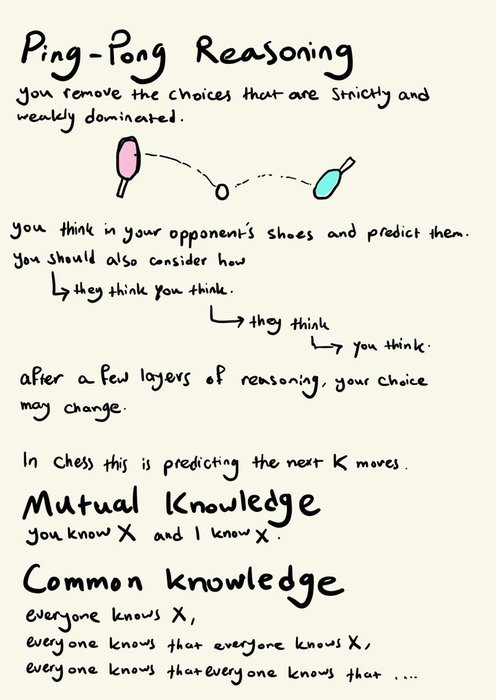 Ping-Pong Reasoning
you remove the choices that are strictly and
weakly dominated.
you think in your opponent's shoes and predict them.
you should also consider how
they think you think.
they think
you think.
after a few layers of reasoning, your choice
may change.
In chess this is predicting the next K moves.
Mutual Knowledge
you know X and I know X.
Common knowledge
everyone knows X,
everyone knows that everyone knows X,
everyone knows that everyone knows that ....